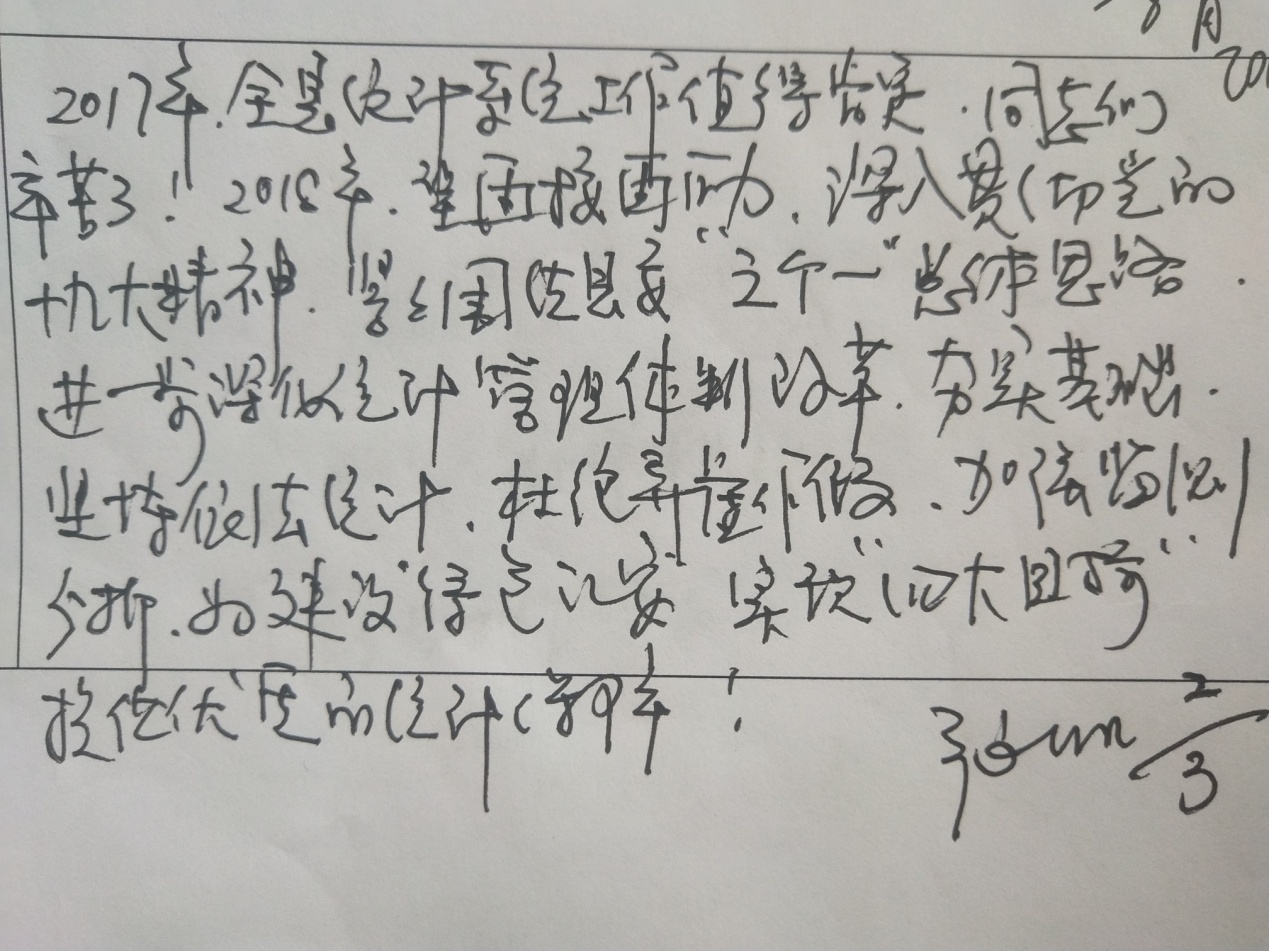 月
201
2017年,全县统计系统工作值得肯定,同志们
辛苦了!2018年,望再接再厉,深入贯彻党的
十九大精神,紧紧围绕县委“三个一”总体思路,
进一步深化统计管理体制改革,夯实基础,
坚持依法统计,杜绝弄虚作假,加强监测
分析,为建设“绿色 ”实现“四大目标”
提供优质的统计服务!
2/3